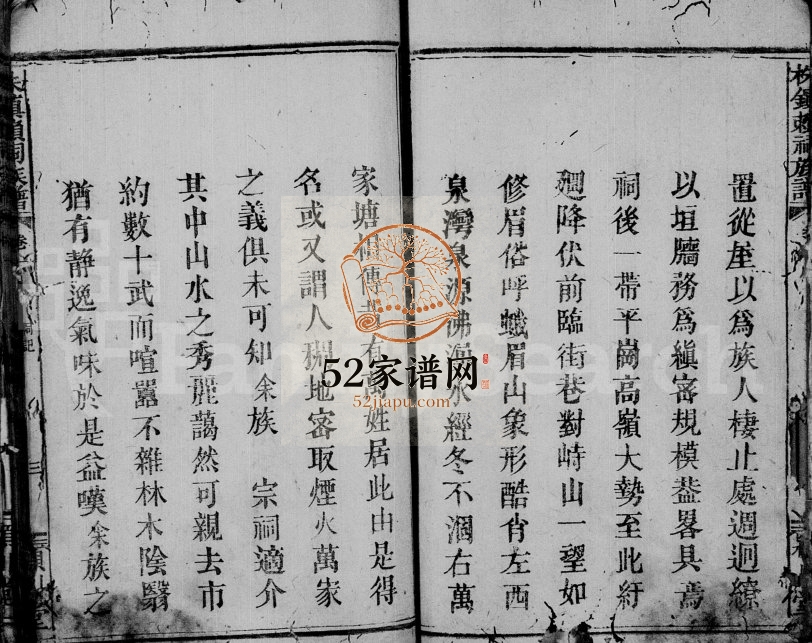 置從垕以爲族人棲止處週迴繚
以垣牆務爲縝密規模葢畧具焉
祠後一帶平崗高嶺大勢至此紆
廻降伏前臨街巷對峙山一望如
修眉俗呼蛾眉山象形酷肖左西
泉灣泉源沸海水經冬不涸右萬
家塘相傳昔有萬姓居此由是得
名或又謂人稠地密取煙火萬家
之義俱未可知余族 宗祠適介
其中山水之秀麗藹然可親去市
約數十武而喧囂不雜林木陰翳
猶有靜逸氣味於是益嘆余族之
52家谱网
52jiapu.com